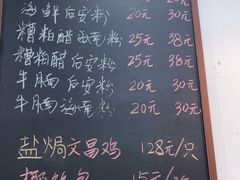 海鲜后安粉 20元 30元
糟粕醋海南粉 25元 38元
糟粕醋后安粉 25元 38元
牛腩后安粉 20元 30元
牛腩海南粉 20元 30元
盐焗文昌鸡 128元/只
15元/